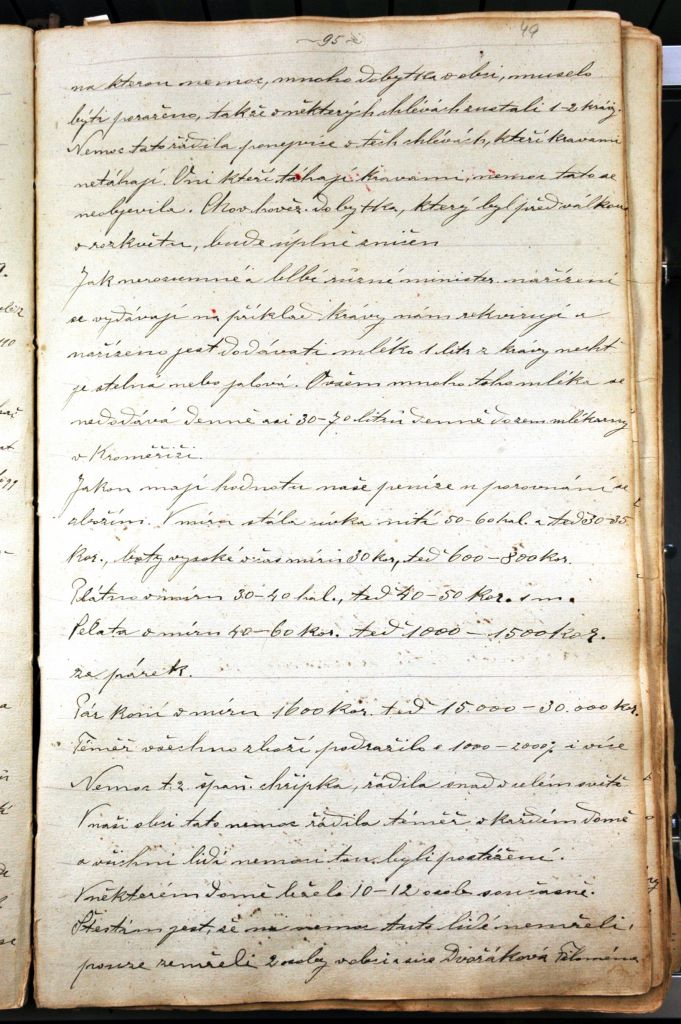 ~ 95 ~ 49
na kterou nemoc, mnoho dobytka v obci, muselo
býti poraženo, takže v některých chlévách zustali 1-2 krávy.
Nemoc tato řádila ponejvíce v těch chlévách, kteří kravami
netáhají. Oni kteří táhají kravami, nemoc tato se
neobjevila. Chov hověz. dobytka, který byl před válkou
v rozkvětu, bude úplně zničen
Jak nerozumné a blbé různé minister. nařízení
se vydávají na příklad krávy nám rekvirují a
nařízeno jest dodávati mléko 1 litr z krávy necht
je stelná nebo jalová. Ovšem mnoho toho mléka se
nedodává denně asi 30-70 litrů denně do zem. mlékarny
v Kroměříži.
Jakou mají hodnotu naše peníze u porovnání se
zbožím. V míru stála cívka nití 50-60 hal. a teď 30-35
Kor., boty vysoké v čas míru 30 kor, teď 600-800 kor.
Plátno v míru 30-40 hal., teď 40-50 Kor. 1 m.
Selata v míru 40-60 kor. teď 1000-1500 kor.
za párek.
Pár koní v míru 1600 kor. teď 15.000-30.000 kor.
Téměř všechno zboží podražilo o 1000-2000% i více
Nemoc t.z. špaň. chřipka, řádila snad v celém světě
V naši obci tato nemoc řádila téměř v každém domě
a všichni lidi nemocí tou byli postižení.
V některém domě leželo 10-12 osob současně.
Štěstím jest, že na nemoc tuto lidé nemřeli,
pouze zemřeli 2 osoby v obci a sice Dvořáková Filoména